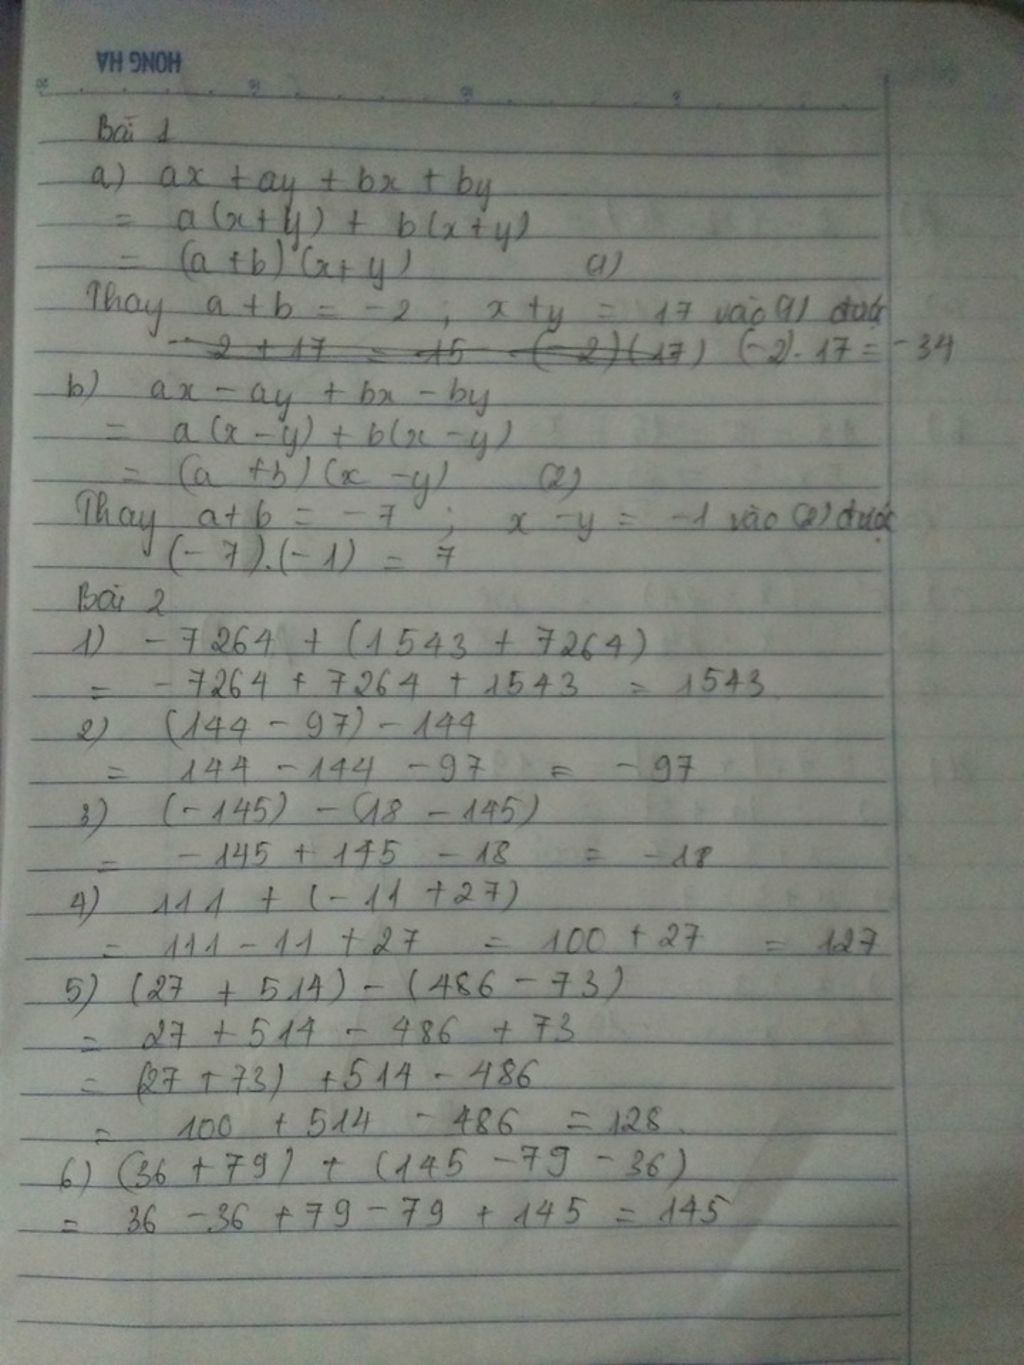 HONG HA
Bài 1
a) ax + ay + bx + by
= a(x+y) + b(x+y)
= (a+b)(x+y) (1)
Thay a+b = -2 ; x+y = 17 vào (1) được
-2+17 = 15 (-2)(17) (-2).17 = -34
b) ax - ay + bx - by
= a(x-y) + b(x-y)
= (a+b)(x-y) (2)
Thay a+b = -7 ; x-y = -1 vào (2) được
(-7).(-1) = 7
Bài 2
1) -7264 + (1543 + 7264)
= -7264 + 7264 + 1543 = 1543
2) (144 - 97) - 144
= 144 - 144 - 97 = -97
3) (-145) - (18 - 145)
= -145 + 145 - 18 = -18
4) 111 + (-11 + 27)
= 111 - 11 + 27 = 100 + 27 = 127
5) (27 + 514) - (486 - 73)
= 27 + 514 - 486 + 73
= (27 + 73) + 514 - 486
= 100 + 514 - 486 = 128.
6) (36 + 79) + (145 - 79 - 36)
= 36 - 36 + 79 - 79 + 145 = 145